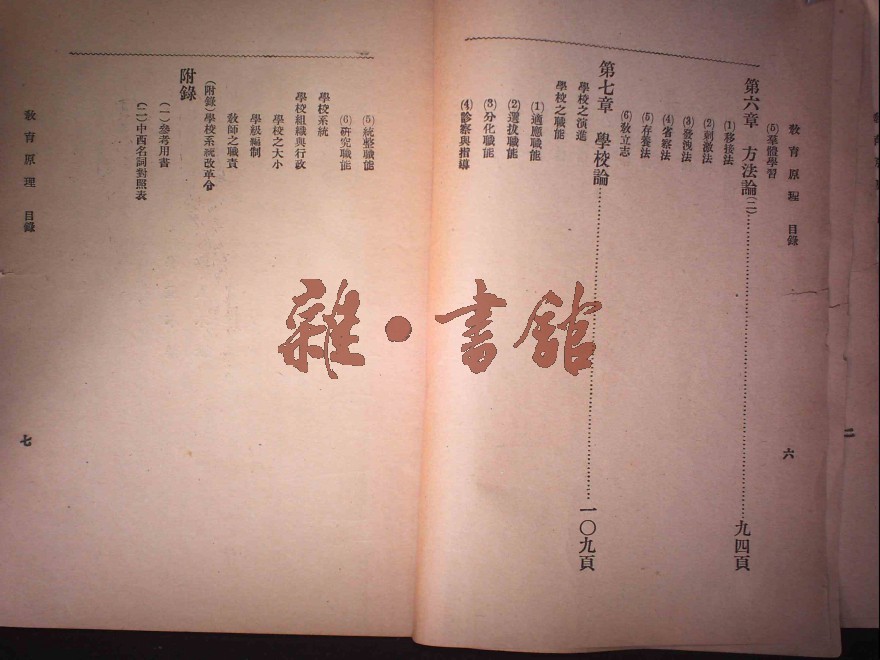 教育原理 目錄
六
(5)羣體學習
第六章 方法論(二)……九四頁
(1)移接法
(2)刺激法
(3)發洩法
(4)省察法
(5)存養法
(6)教立志
第七章 學校論……一〇九頁
學校之演進
學校之職能
(1)適應職能
(2)選拔職能
(3)分化職能
(4)診察與指導
(5)統整職能
(6)研究職能
學校系統
學校組織與行政
學校之大小
學級編制
教師之職責
(附錄)學校系統改革令
附錄
(一)參考用書
(二)中西名詞對照表
教育原理 目錄
七
二
雜·書館